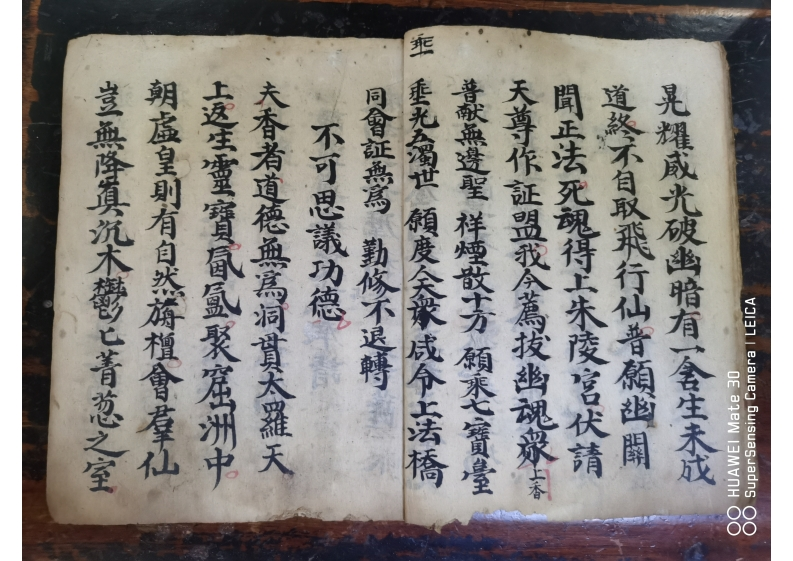 晃耀威光破幽暗有一含生未成
道終不自取飛行仙普願幽關
聞正法死魂得上朱陵宮伏請
天尊作証盟我今薦拔幽魂衆上香
普献無邊聖 祥煙散十方 願乘七寶臺
垂光五濁世 願度人天衆 咸令上法橋
同會証無爲 勤修不退轉
不可思議功德
夫香者道德無爲洞貫大羅天
上返生靈寶氤氳聚窟洲中
朝虛皇則有自然旃檀會羣仙
豈無降真沉木鬱匕菁葱之室
HUAWEI Mate 30
SuperSensing Camera | LEICA